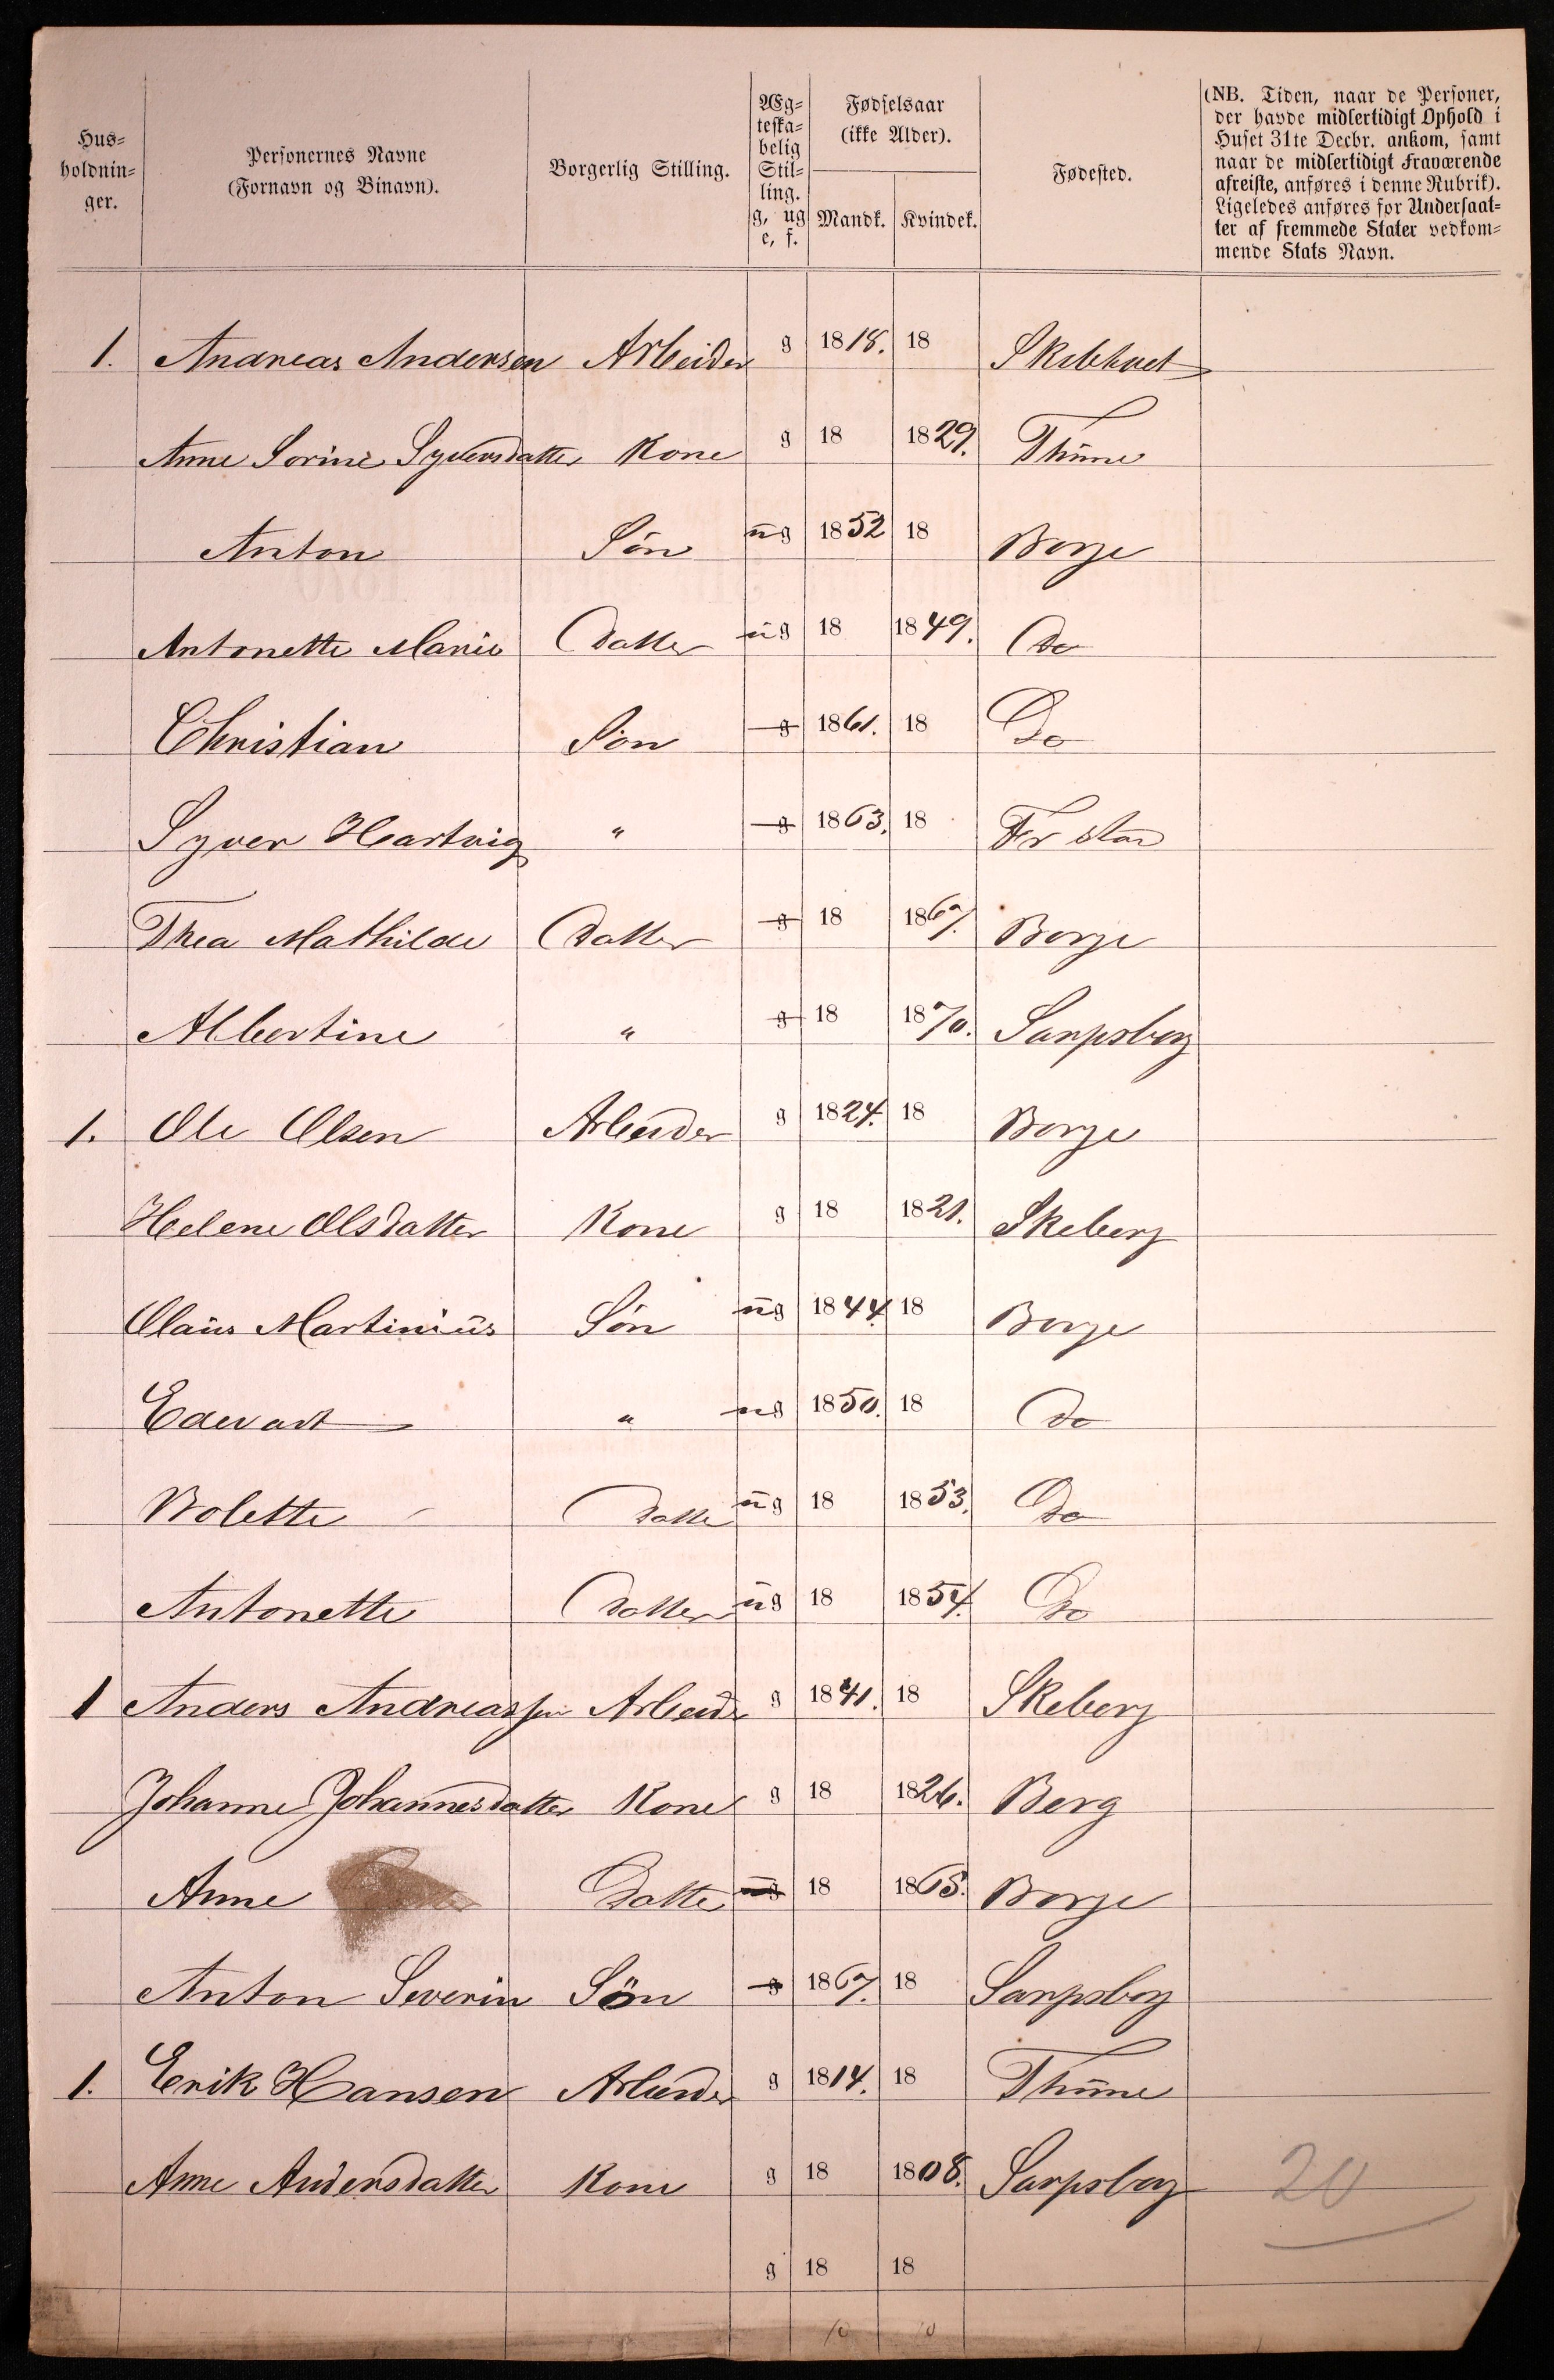 Hus-
holdnin-
ger.
Personernes Navne
(Fornavn og Binavn).
Borgerlig Stilling.
Æg-
teska-
belig
Stil-
ling.
g, ug
e, f.
Fødselsaar
(ikke Alder).
Mandk. Kvindek.
Fødested.
(NB. Tiden, naar de Personer,
der havde midlertidigt Ophold i
Huset 31te Decbr. ankom, samt
naar de midlertidigt Fraværende
afreiste, anføres i denne Rubrik).
Ligeledes anføres for Undersaat-
ter af fremmede Stater vedkom-
mende Stats Navn.
1. Andreas Andersen Arbeider g 1818. 18
Anne Sorine Syversdatter Kone g 18 1829. Thüne
Anton Søn ug 1852 18 Borge
Antonette Marie Datter ug 18 1849. Do
Christian Søn g 1861. 18 Do
Syver Hartvig " g 1863. 18 Fr stad
Thea Mathilde Datter g 18 1867. Borge
Albertine " g 18 1870. Sarpsborg
1. Ole Olsen Arbeider g 1824. 18 Borge
Helene Olsdatter Kone g 18 1821. Skeberg
Olaüs Martiniüs Søn üg 1844. 18 Borge
Edevart " ug 1850. 18 Do
Bolette Datte üg 18 1853. Do
Antonette Datter üg 18 1854. Do
1 Anders Andreassen Arbeider g 1841. 18 Skeberg
Johanne Johannesdatter Kone g 18 1826. Berg
Anne Datter ug 18 1865. Borge
Anton Severin Sön g 1867. 18 Sarpsborg
1. Erik Hansen Arbeider g 1814. 18 Thüne
Anne Andersdatter Kone g 18 1808. Sarpsborg 20
g 18 18
10 10